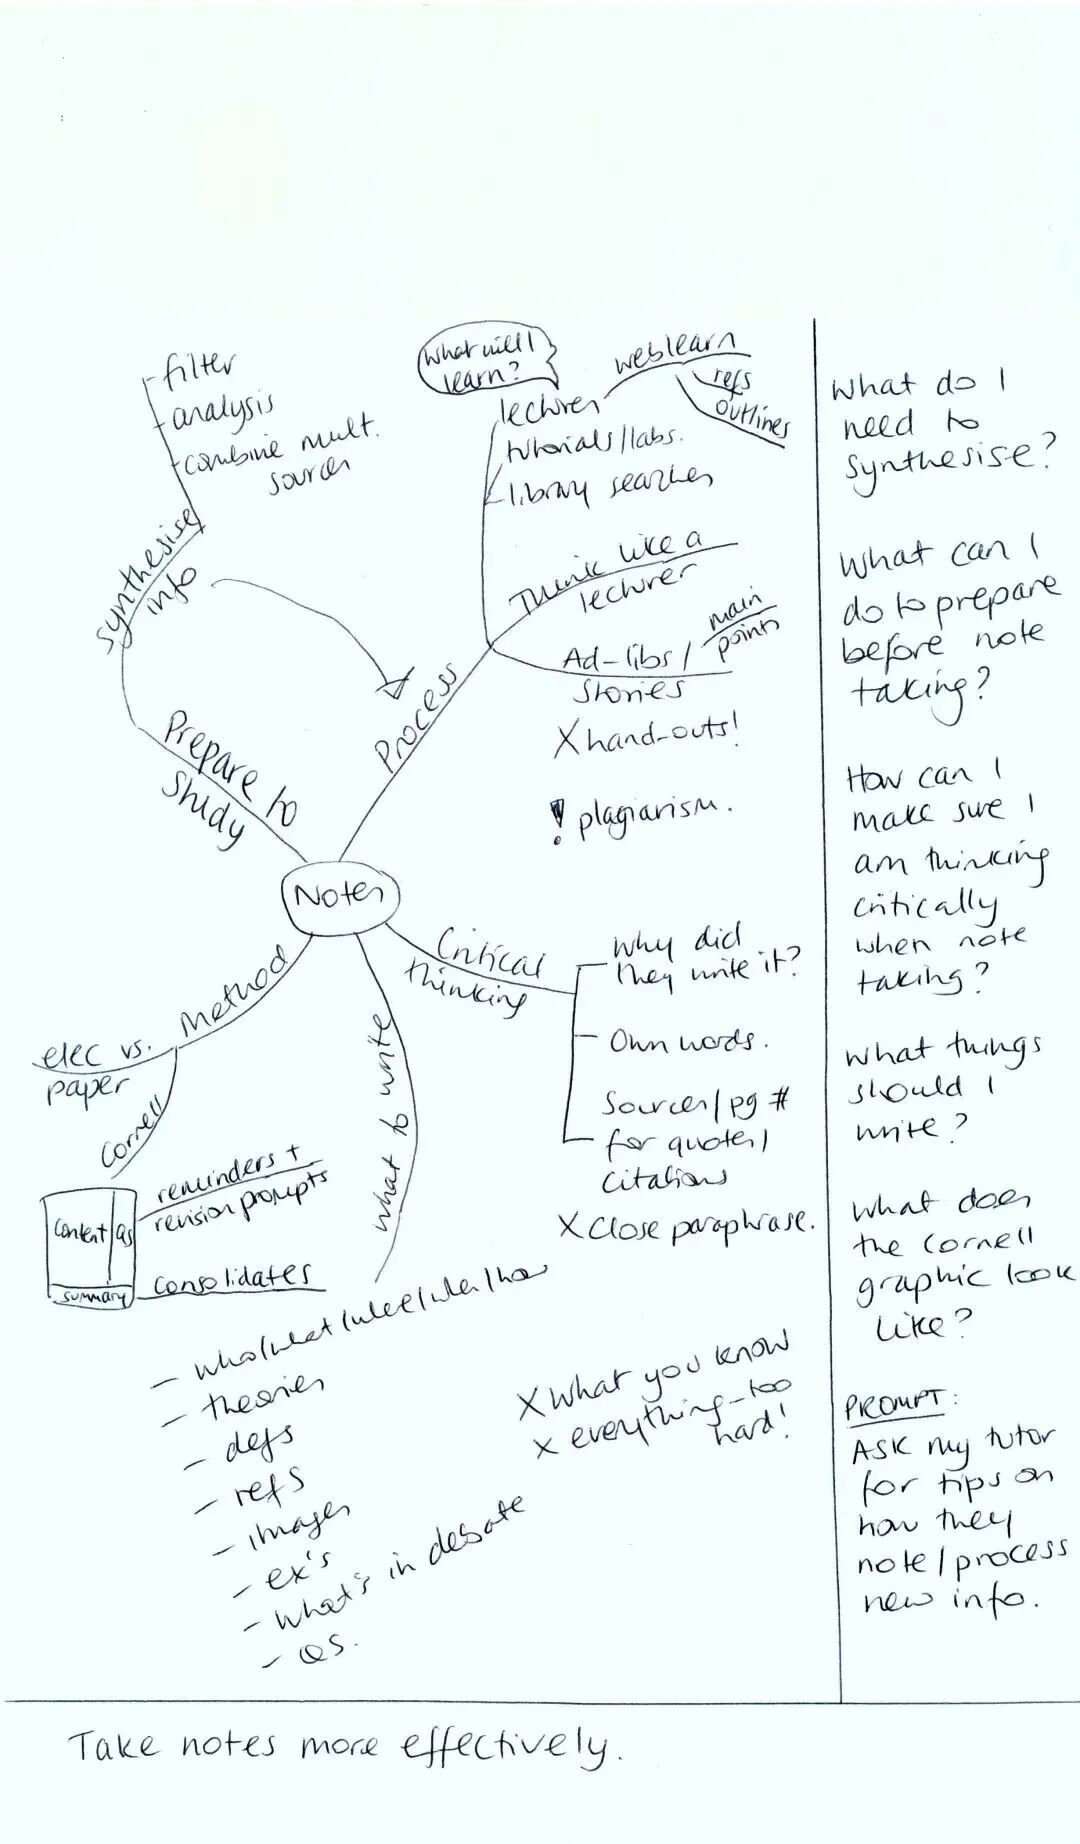 filter
analysis
combine mult.
sources
synthesise
info
Prepare to
study
What will I
learn?
lectures
weblearn
refs
outlines
tutorials/labs.
library searches
Think like a
lecturer
Process
Ad-libs/
stories
main
points
X hand-outs!
! plagiarism.
Notes
Critical
thinking
Why did
they write it?
Own words.
Sources/pg #
for quotes/
citations
X Close paraphrase.
Method
elec vs.
paper
Cornell
Content
Qs
summary
reminders +
revision prompts
Consolidates
what to write
- who/what/where/when/how
- theories
- defs
- refs
- images
- ex's
- what's in debate
- Qs.
X What you know
X everything - too
hard!
What do I
need to
synthesise?
What can I
do to prepare
before note
taking?
How can I
make sure I
am thinking
critically
when note
taking?
What things
should I
write?
What does
the Cornell
graphic look
like?
PROMPT:
Ask my tutor
for tips on
how they
note/process
new info.
Take notes more effectively.